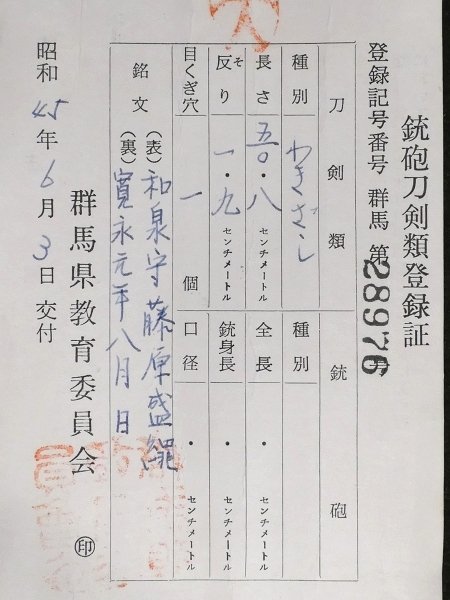 銃砲刀剣類登録証
登録記号番号 群馬 第28976号
刀剣類
種別 わきざし
長さ 五〇・八 センチメートル
反り 一・九 センチメートル
そ
目くぎ穴 一 個
銃砲
種別
全長 ・ センチメートル
銃身長 ・ センチメートル
口径 ・ センチメートル
銘文 (表) 和泉守藤原盛縄
(裏) 寛永元年八月日
群馬県教育委員会 ㊞
昭和45年6月3日交付